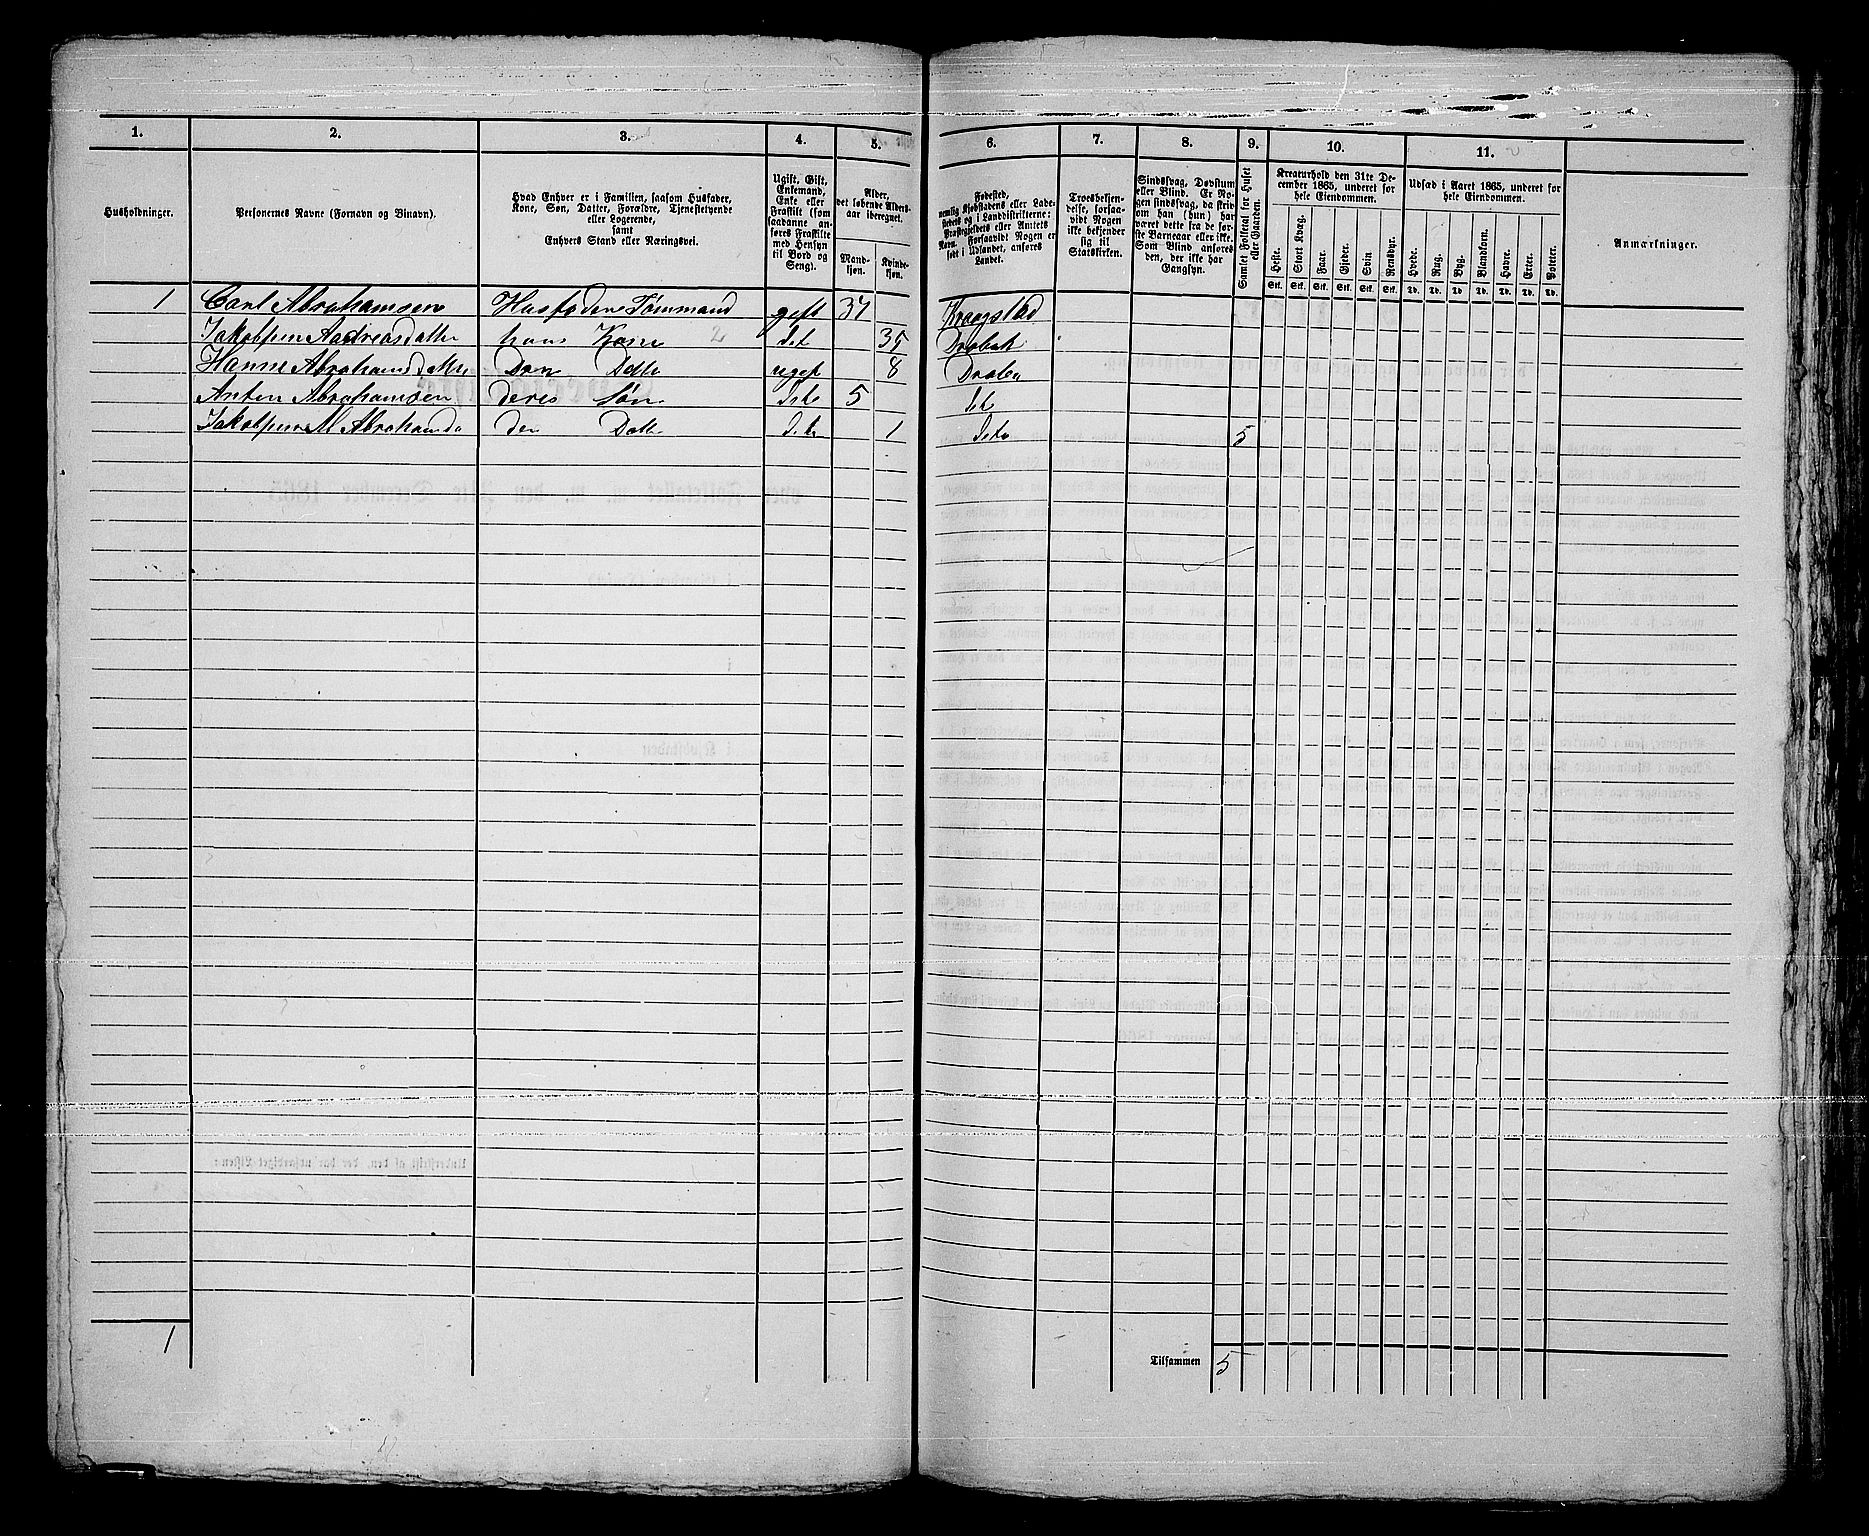 1. 2. 3. 4. 5. 6. 7. 8. 9. 10. 11.
Husholdninger.
Personernes Navne (Fornavn og Binavn).
Hvad Enhver er i Familien, saasom Husfader,
Kone, Søn, Datter, Forældre, Tjenestetyende
eller Logerende,
samt
Enhvers Stand eller Næringsvei.
Ugift, Gift,
Enkemand,
Enke eller
Fraskilt (som
saadanne an-
føres Fraskilte
med Hensyn
til Bord og
Seng).
Alder,
det løbende Alders-
aar iberegnet.
Mand-
kjøn.
Kvinde-
kjøn.
Fødested,
nemlig Kjøbstadens eller Lade-
stedets og i Landdistrikterne:
Præstegjeldets eller Amtets
Navn. Forsaavidt Nogen er
født i Udlandet, anføres
Landet.
Troesbekjen-
delse, forsaa-
vidt Nogen
ikke bekjender
sig til
Statskirken.
Sindssvag, Døvstum
eller Blind. Er No-
gen sindssvag, da skriv
om han (hun) har
været dette fra de før-
ste Barneaar eller ikke.
Som Blind anføres
den, der ikke har
Gangsyn.
Samlet Folketal for Huset
eller Gaarden.
Kreaturhold den 31te De-
cember 1865, underet for
hele Eiendommen.
Heste. Stort Kvæg. Faar. Gjeder. Svin Rensdyr.
Stk. Stk. Stk. Stk. Stk. Stk.
Udsæd i Aaret 1865, underet for
hele Eiendommen.
Hvede. Rug. Byg. Blandkorn. Havre. Erter. Poteter.
Td. Td. Td. Td. Td. Td. Td.
Anmærkninger.
1 Carl Abrahamsen Husfader Tømmand gift 37 Kraagstad
Andreasdatter hans Kone 2 det 35 Drøbak
Hanne Abrahamsdatter Datt ugift 8
Anten Abrahamsen deres Søn dito 5 dito
M Abrahamsda Datt dito 1 dito 5
1
Tilsammen 5